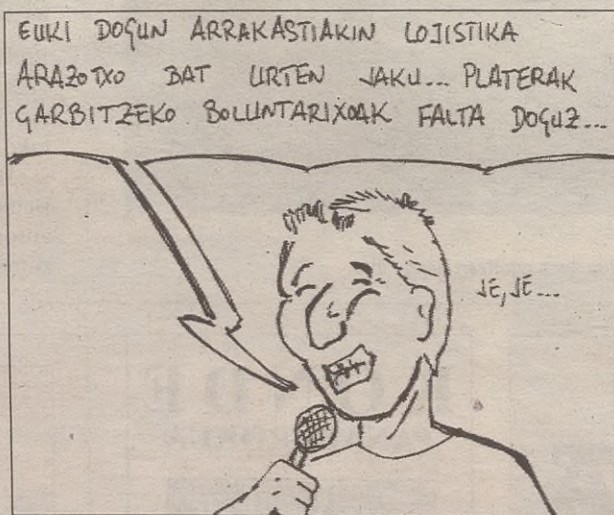 EUKI DOGUN ARRAKASTIAKIN LOJISTIKA
ARAZOTXO BAT URTEN JAKU... PLATERAK
GARBITZEKO BOLUNTARIXOAK FALTA DOGUZ...
JE, JE...